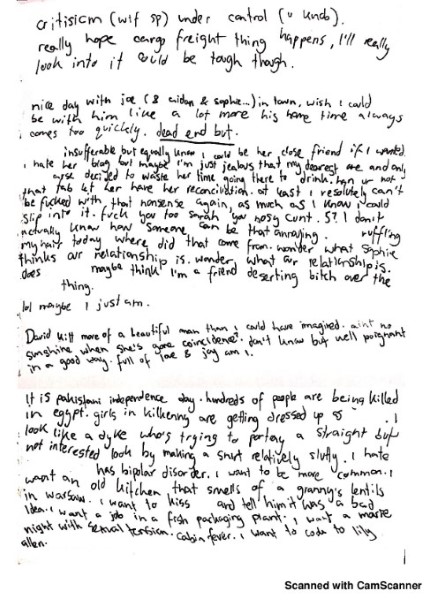 critisism (wtf sp) under control (u kndo).
really hope cargo freight thing happens, I'll really
look into it could be tough though.
nice day with joe (& aidan & sophie...) in town, wish I could
be with him like a lot more his home time always
comes too quickly. dead end but.
insufferable but equally know I could be her close friend if I wanted.
I hate her blog but maybe I'm just jealous that my dearest one and only
arse decided to waste her time going there to drink. han ur not
that fab let her have her reconciliation. at least I resolutely can't
be fucked with that nonsense again, as much as I know I could
slip into it. fuck you too sarah you nosy cunt. I don't
actually know how someone can be that annoying. ruffling
my hair today where did that come from. wonder what sophie
thinks our relationship is. wonder what our relationship is.
does maybe think I'm a friend deserting bitch over the
thing.
lol maybe I just am.
David Kitt more of a beautiful man than I could have imagined. aint no
sunshine when she's gone coincidence? don't know but well poignant
in a good way. full of joe & joy am I.
It is pakistani independence day. hundreds of people are being killed
in egypt. girls in kilkenny are getting dressed up as . I
look like a dyke who's trying to portay a straight but
not interested look by making a shirt relatively slutty. I hate
has bipolar disorder. I want to be more common. I
want an old kitchen that smells of a granny's lentils
in warsaw. I want to kiss and tell him it was a bad
idea. I want a job in a fish packaging plant. I want a movie
night with sexual tension. cabin fever. I want to code to lily
allen.
Scanned with CamScanner